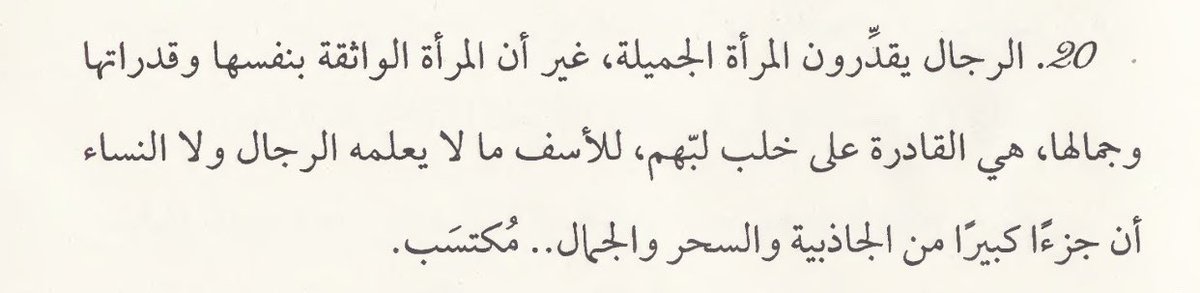 20. الرجال يقدِّرون المرأة الجميلة، غير أن المرأة الواثقة بنفسها وقدراتها
وجمالها، هي القادرة على خلب لبّهم، للأسف ما لا يعلمه الرجال ولا النساء
أن جزءًا كبيرًا من الجاذبية والسحر والجمال.. مُكتسَب.